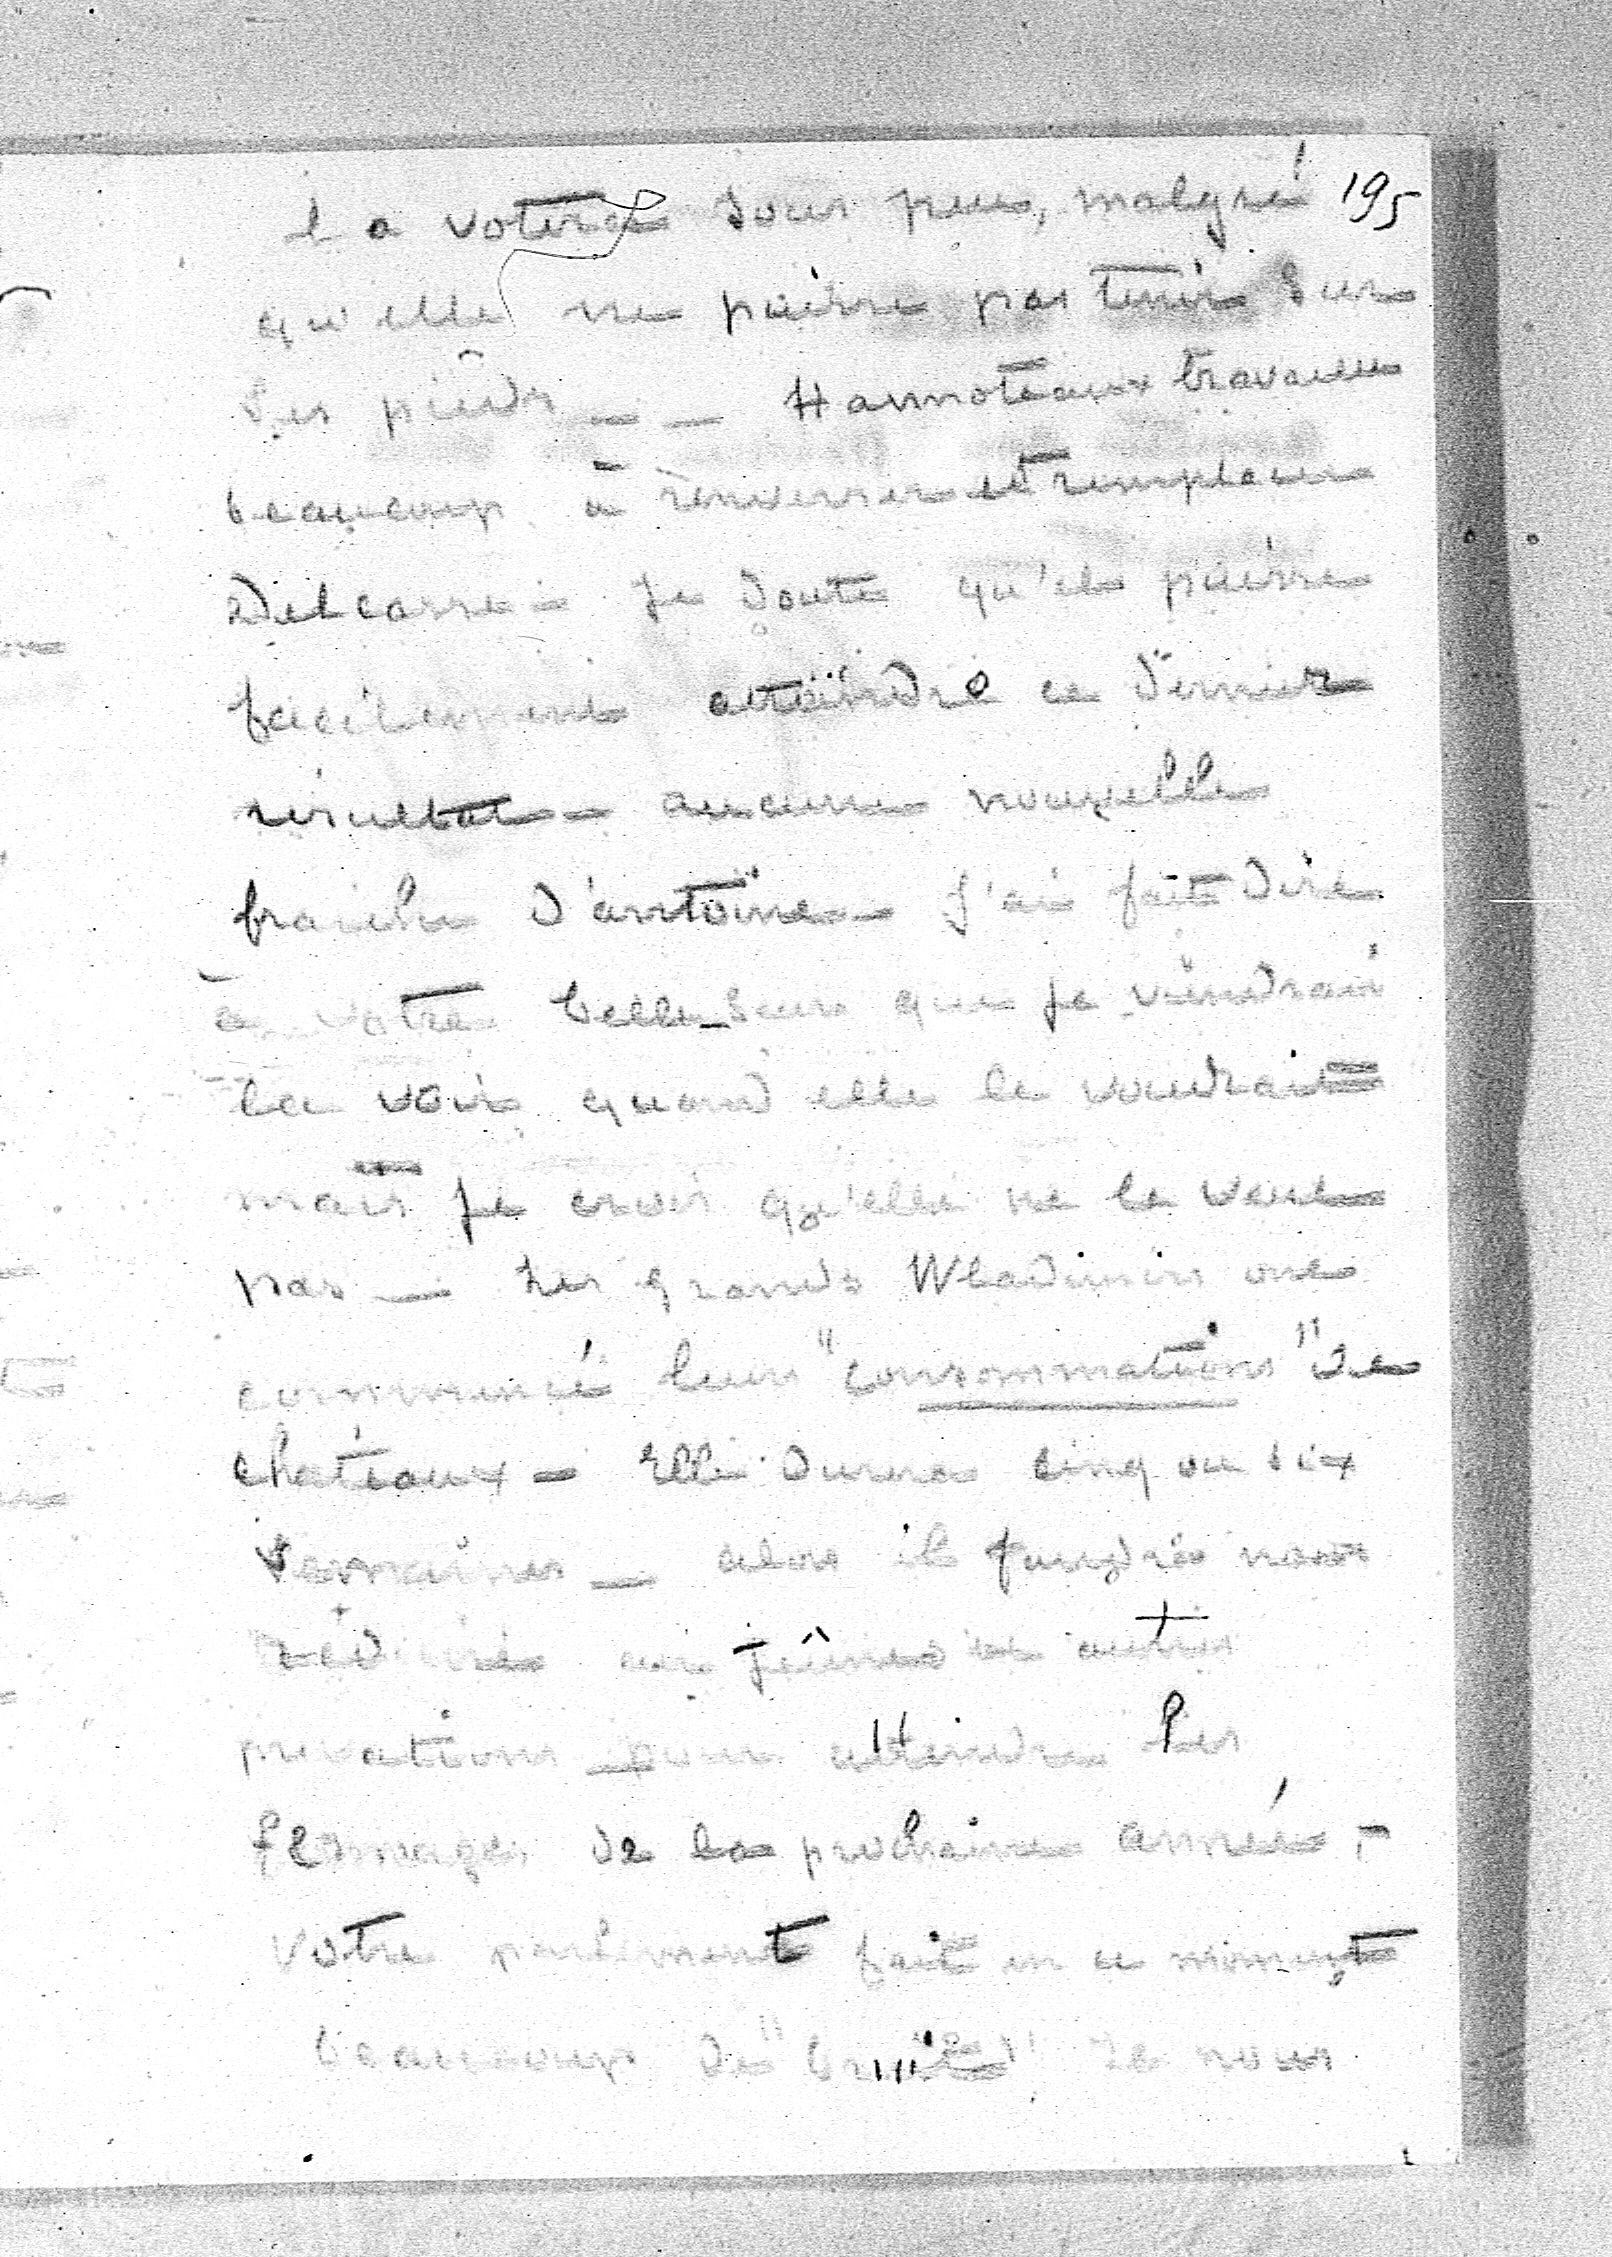 195
la votera sous peu, malgré
qu'elle ne puisse pas tenir sur
ses pieds _ _ Hannoteaux travaille
beaucoup à renverser et remplacer
Delcassé - Je doute qu'il puisse
facilement atteindre ce dernier
résultat - aucune nouvelle
fraiche d'antoine - J'ai fait dire
à votre belle-seur que je viendrai
la voir quand elle le voudrait
mais je crois qu'elle ne le veut
pas _ Les grands Wladimirs ont
commencé leur "consommation" de
chateaux - Elle durera cinq ou six
semaines _ alors il faudra nous
réduire au jeûnes et autres
privations pour attendre les
fermages de la prochaine année -
Votre parlement fait en ce moment
beaucoup de il nous